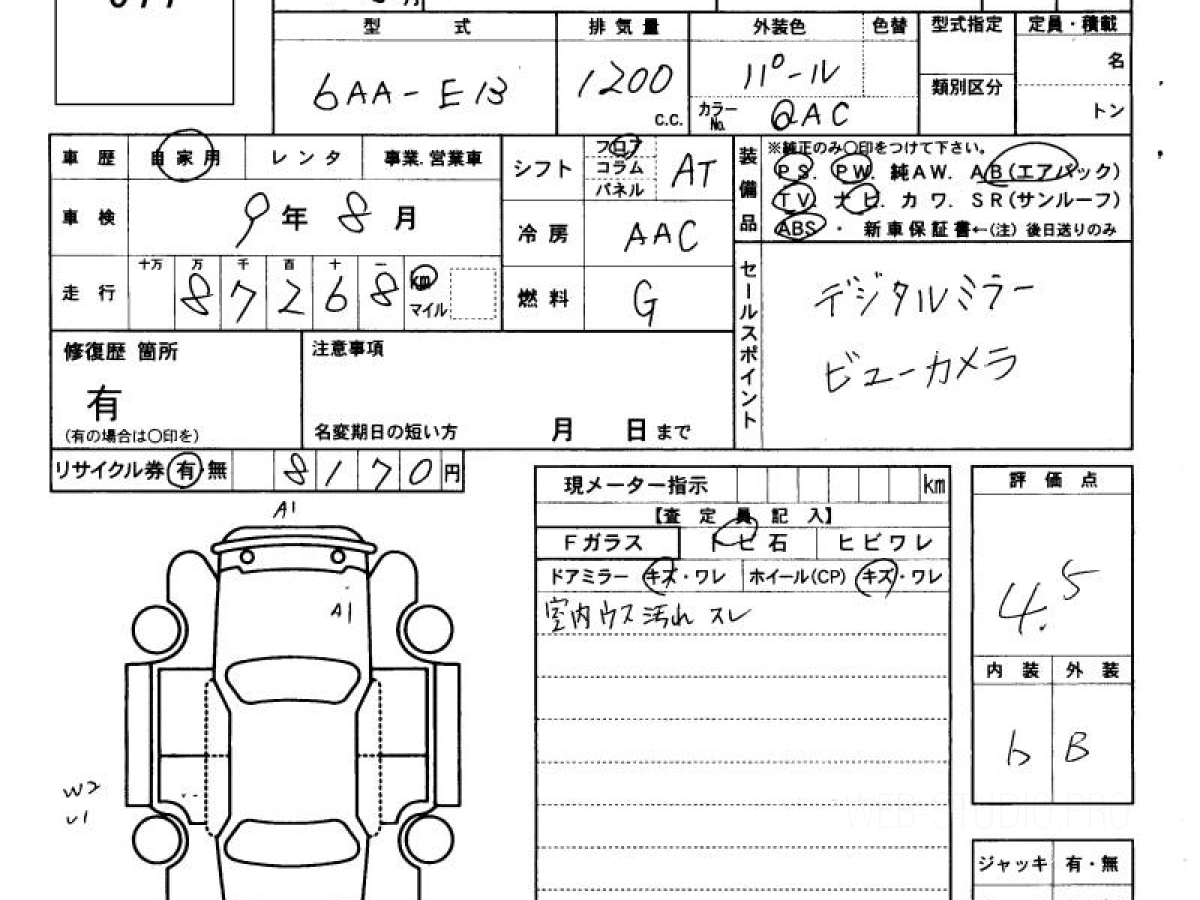 型 式 排気量 外装色 色替 型式指定 定員・積載
6AA-E13 1200 c.c. パール 名
類別区分
カラーNo. QAC トン
車歴 自家用 レンタ 事業.営業車 シフト フロア コラム パネル AT
装備品 ※純正のみ○印をつけて下さい。
PS. PW. 純AW. AB(エアバック)
TV. ナビ. カワ. SR(サンルーフ)
ABS ・ 新車保証書←(注) 後日送りのみ
車検 9年8月 冷房 AAC
走行 十万 万 千 百 十 一
87268 km マイル 燃料 G
セールスポイント デジタルミラー
ビューカメラ
修復歴 箇所 注意事項
有
(有の場合は○印を) 名変期日の短い方 月 日 まで
リサイクル券 有・無 8170円
現メーター指示 km
【査定員記入】
Fガラス トビ石 ヒビワレ
ドアミラー キズ・ワレ ホイール(CP) キズ・ワレ
室内ウス汚れ スレ
評価点
4.5
内装 外装
b B
ジャッキ 有・無
A1
A1
W2
U1
WEB-STUDIO.PRO